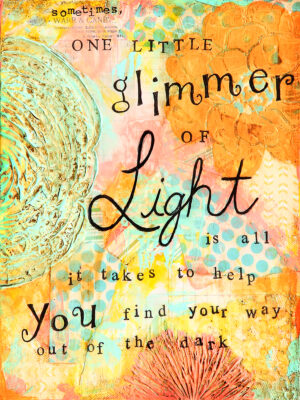 sometimes,
WARP & CANE
ONE LITTLE
glimmer
OF
Light
is all
it takes to help
you find your way
out of the dark